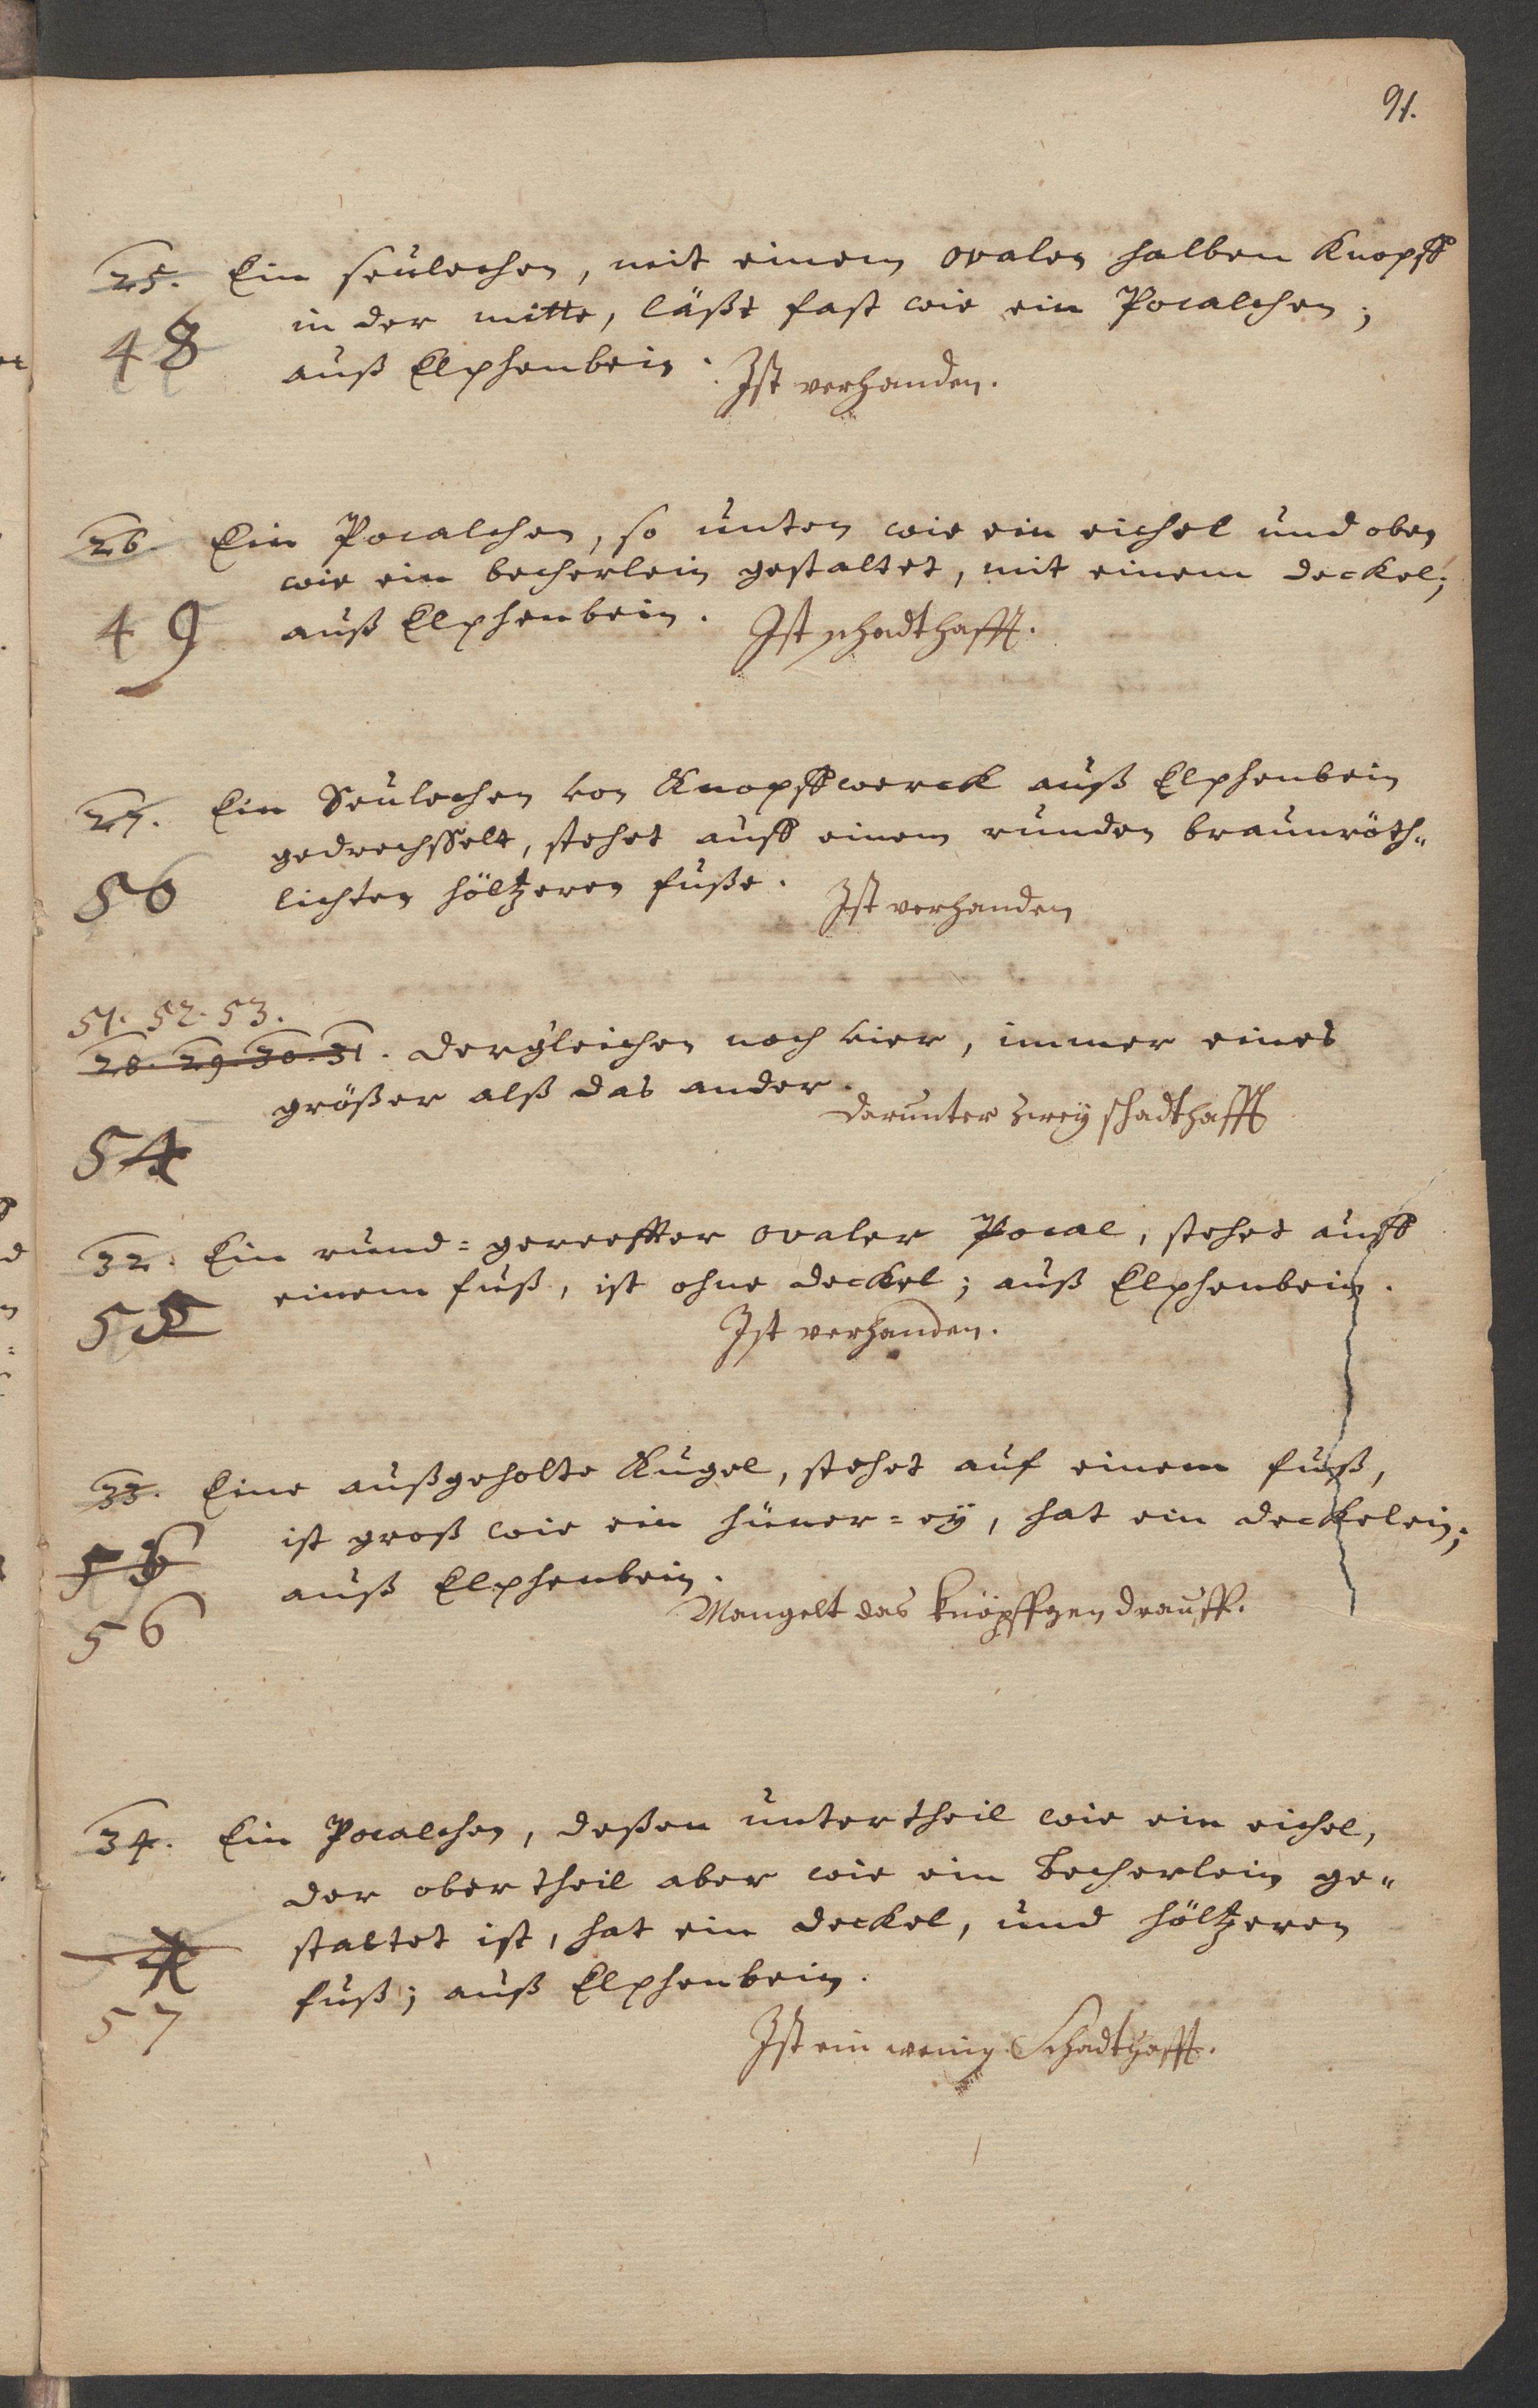 91.
25. Ein seulechen, mit einem ovalen halben Knopff
in der mitte, läßt fast wie ein Pocalchen;
48
auß Elphenbein. Ist verhanden.
26. Ein Pocalchen, so unten wie ein eichel und oben
wie ein becherlein gestaltet, mit einem deckel;
49
auß Elphenbein. Ist schadthafft.
27. Ein Seulechen von Knopffwerck auß Elphenbein
gedrechsselt, stehet auff einem runden braunröth„
50
lichten höltzeren fuße. Ist verhanden
51. 52. 53.
28. 29. 30. 31. dergleichen noch vier, immer eines
größer alß das ander.
darunter zweÿ schadthafft
54
32. Ein rund=gereeffter ovaler Pocal, stehet auff
55
einem fuß, ist ohne deckel; auß Elphenbein.
Ist verhanden.
33. Eine außgeholte Kugel, stehet auf einem fuß,
ist groß wie ein hüner=eÿ, hat ein deckelein;
auß Elphenbein.
Mangelt das knöpffgen drauff.
56
34. Ein Pocalchen, deßen untertheil wie ein eichel,
der obertheil aber wie ein becherlein ge„
staltet ist, hat ein deckel, und höltzeren
fuß; auß Elphenbein.
57
Ist ein wenig Schadthafft.